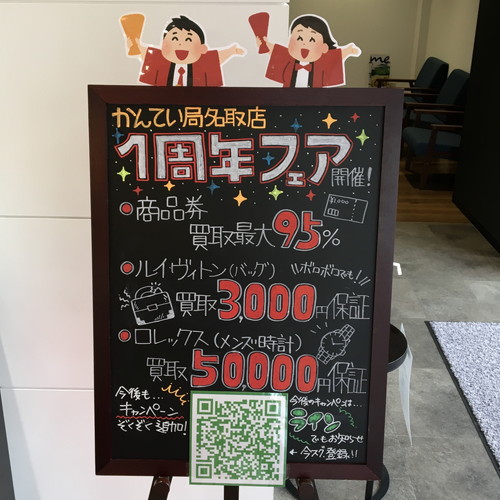 かんてい局名取店
1周年フェア開催!
●商品券
買取最大95%
●ルイヴィトン(バッグ) \\ボロボロでも!//
買取3,000円保証
●ロレックス(メンズ時計)
買取50,000円保証
今後も…
キャンペーン
ぞくぞく追加!
今後のキャンペーンは…
ライン
でもお知らせ
←今スグ登録!!
¥1,000
me